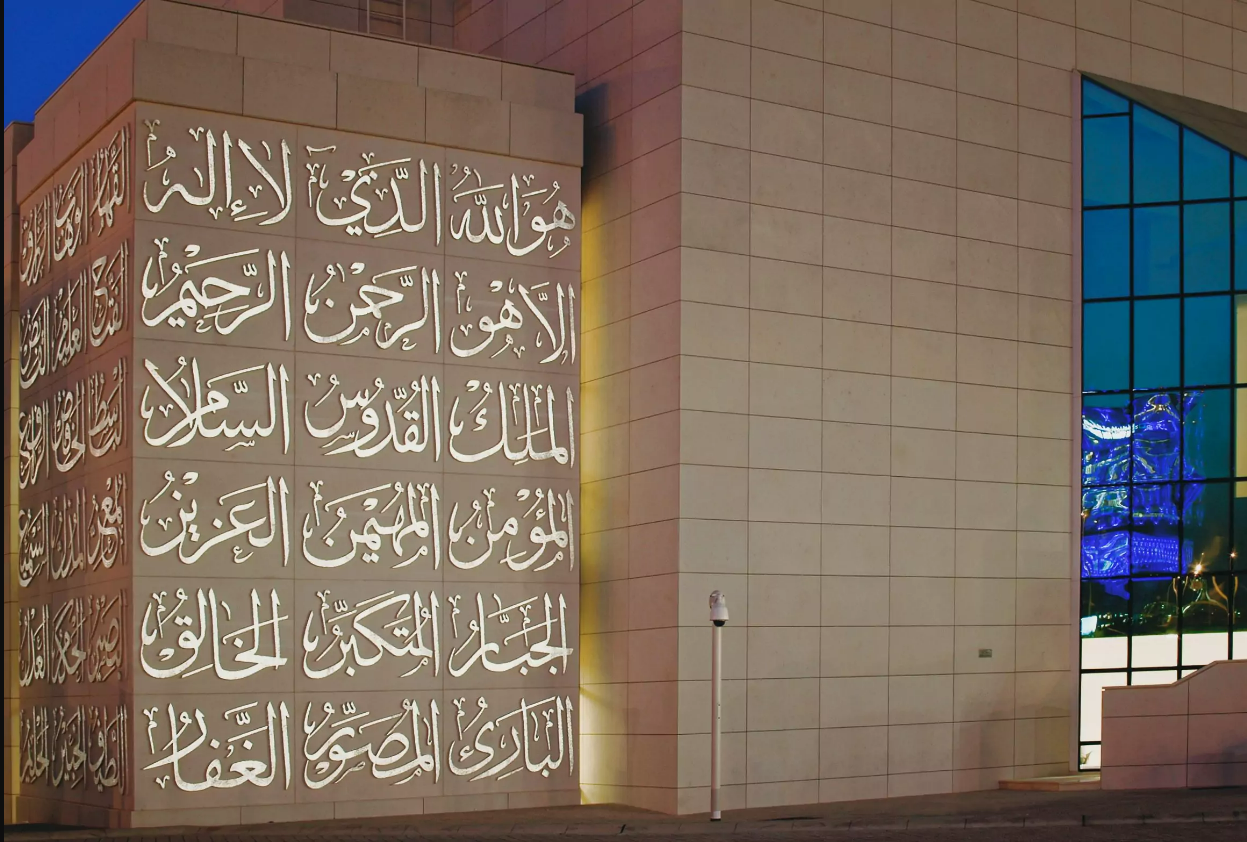 هو الله الذي لا إله
إلا هو الرحمن الرحيم
الملك القدوس السلام
المؤمن المهيمن العزيز
الجبار المتكبر الخالق
البارئ المصور الغفار
القهار الوهاب الرزاق
الفتاح العليم القابض
الباسط الخافض الرافع
المعز المذل السميع
البصير الحكم العدل
اللطيف الخبير الحليم